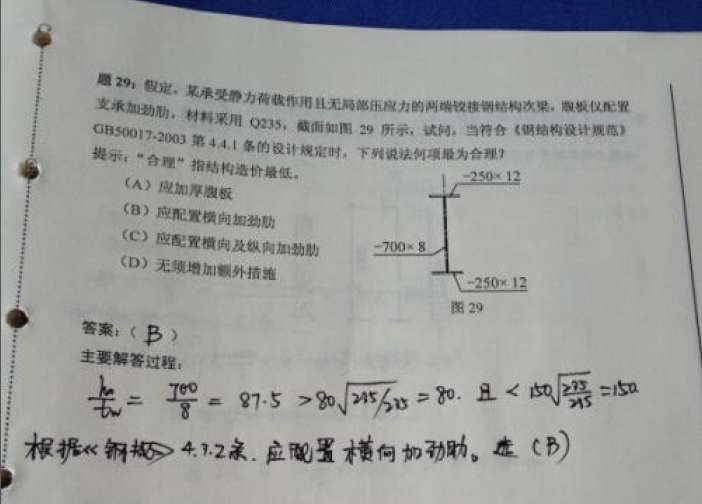 题 29：假定，某承受静力荷载作用且无局部压应力的两端铰接钢结构次梁，腹板仅配置
支承加劲肋，材料采用 Q235，截面如图 29 所示，试问，当符合《钢结构设计规范》
GB50017-2003 第 4.4.1 条的设计规定时，下列说法何项最为合理？
提示：“合理”指结构造价最低。
（A）应加厚腹板
（B）应配置横向加劲肋
（C）应配置横向及纵向加劲肋
（D）无须增加额外措施
-250×12
-700×8
-250×12
图 29
答案：（ B ）
主要解答过程：
h₀/tw = 700/8 = 87.5 > 80√235/235 = 80. 且 < 150√235/235 = 150
根据《钢规》4.3.2条. 应配置横向加劲肋。选（B）